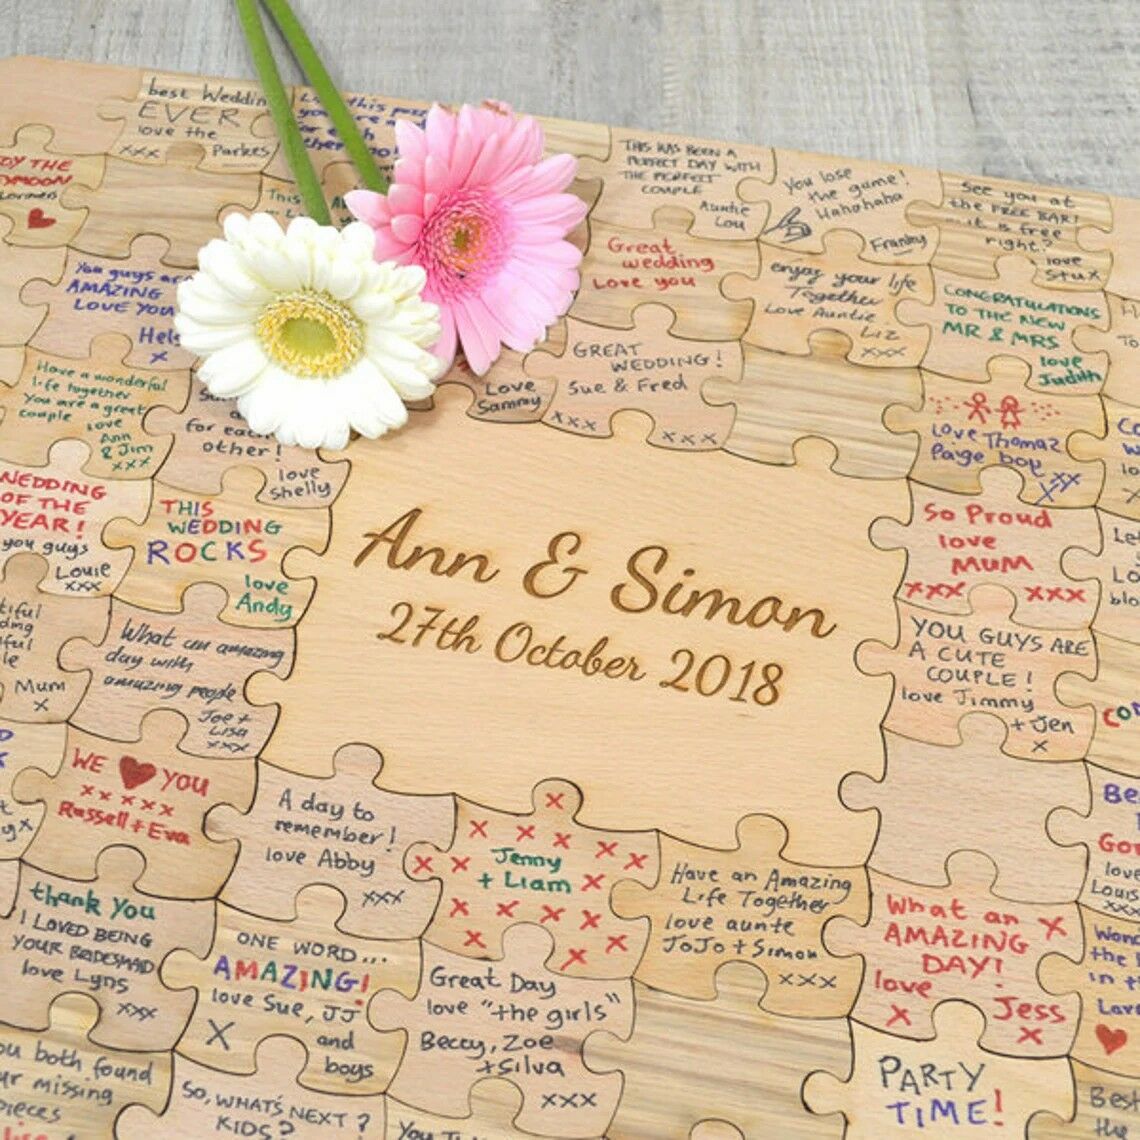 best Wedding
EVER
love the
Parkes
xxx
this
THE
THIS HAS BEEN A
PERFECT DAY WITH
THE PERFECT
COUPLE
Auntie
Lou
You lose
the game!
Hahahaha
Franky
See you at
the FREE BAR!
... it is free
right?
love
Stu x
Great
wedding
Love you
enjoy your life
Together
Love Auntie
Liz
xxx
CONGRATULATIONS
TO THE NEW
MR & MRS
love
Judith
You guys are
AMAZING
LOVE YOU
x
Have a wonderful
life together
You are a great
couple
love
Ann
& Jim
xxx
for each
other!
love
Shelly
Love
Sammy
xxx
GREAT
WEDDING!
Sue & Fred
xxx
Love Thomaz
Paige boy
xx
x
WEDDING
OF THE
YEAR!
you guys
Louie
xxx
THIS
WEDDING
ROCKS
love
Andy
Ann & Simon
27th October 2018
So Proud
love
MUM
xxx xxx
YOU GUYS ARE
A CUTE
COUPLE!
love Jimmy
+ Jen
x
Mum
x
What an amazing
day with
amazing people
Joe +
Lisa
xxx
WE YOU
xxxxx
Russell + Eva
A day to
remember!
love Abby
xxx
x
x x x x x
x x
Jenny
+ Liam x
x x x x
x x x
Have an Amazing
Life Together
love aunte
JoJo + Simon
xxx
What an x
AMAZING
DAY!
love
x Jess
x
thank You
I LOVED BEING
YOUR BRIDESMAID
love Lyns
xxx
ONE WORD...
AMAZING!
love Sue, JJ
X and
boys
Great Day
love "the girls"
Beccy, Zoe
+ Silva
xxx
PARTY
TIME!
both found
missing
SO, WHAT'S NEXT?
KIDS?
Best
the